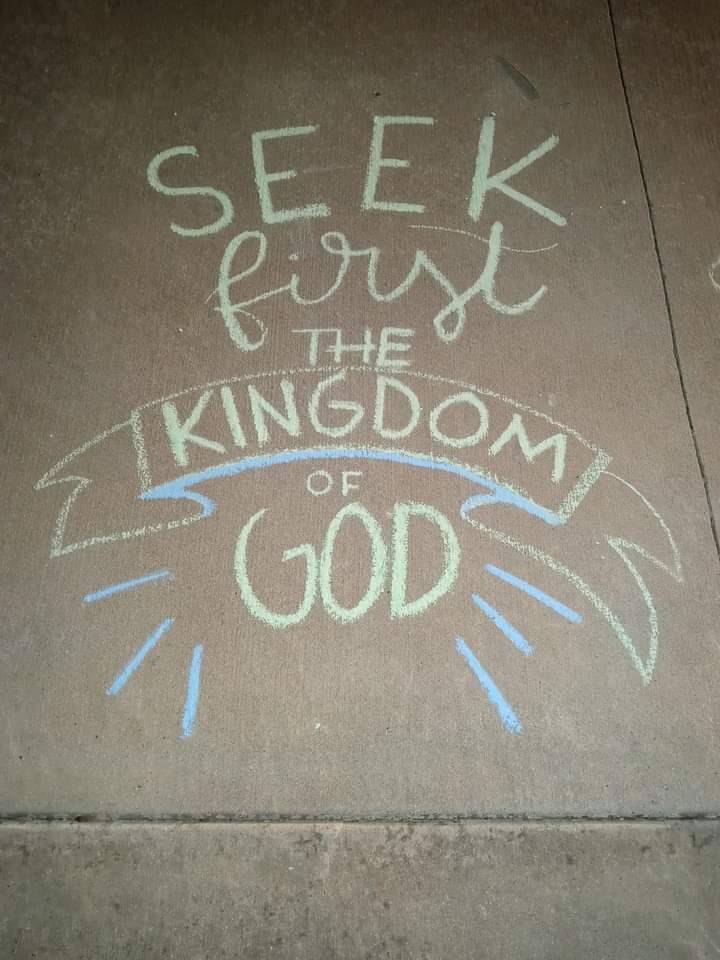 SEEK
first
THE
KINGDOM
OF
GOD